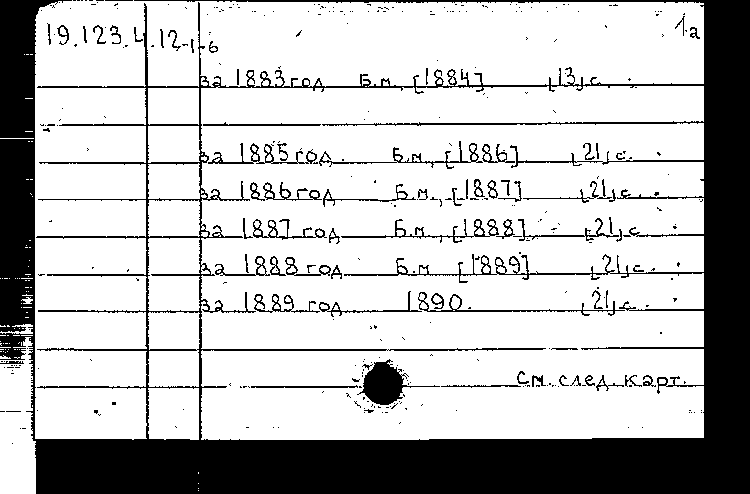 19.123.4.12-1-6 1а
за 1883 год Б.м, [1884] [13]с.
за 1885 год. Б.м., [1886] [21]с.
за 1886 год Б.м., [1887] [21]с.
за 1887 год Б.м., [1888] [21]с.
за 1888 год Б.м [1889] [21]с.
за 1889 год 1890. [21]с.
См. след. карт.